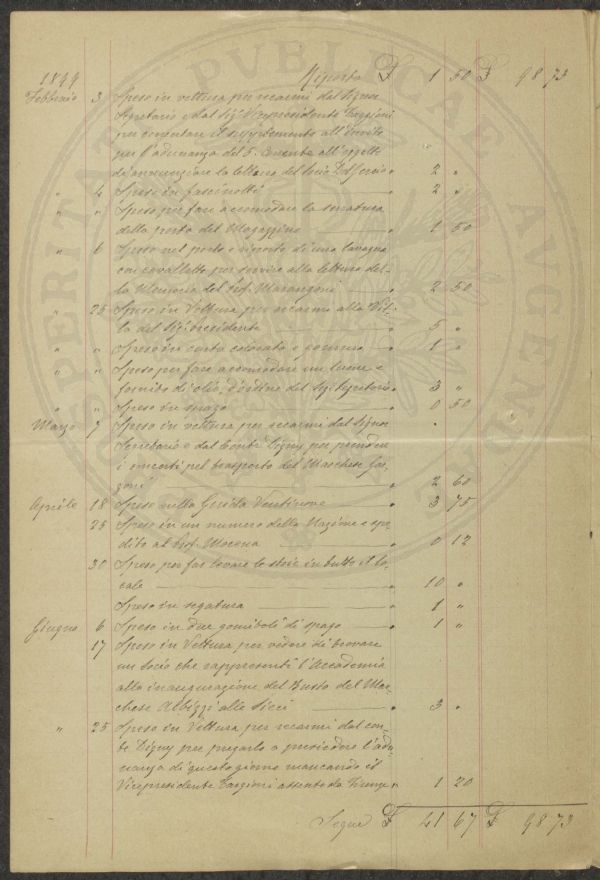 PROSPERITATI PVBLICAE AVGENDAE
1899 Riporto £ 1 50 £ 98 73
Febbraio 3 Spese in vettura per recarmi dal Signor
Segretario e dal Sig. Vicepresidente Targioni
per concertare il supplemento all'Invito
per l'adunanza del 5. Corrente all'oggetto
di annunziare la lettura del Socio Dalgerio " 2 "
" 4 Spese in fascinotti " 2 "
" " Spese per fare accomodare la serratura
della porta del Magazzino " 1 50
" 6 Spese nel porto e riporto di una lavagna
con cavalletto per servire alla lettura del-
la Memoria del Prof. Marangoni " 2 50
" 25 Spese in Vettura per recarmi alla Vil-
la del Sig. Presidente " 5 "
" " Spese in carta colorata e gomma " 1 "
" " Spese per fare accomodare un lume e
fornito di olio, d'ordine del Sig. Segretario " 3 "
" " Spese in spago " 0 50
Marzo 7 Spese in vettura per recarmi dal Signor
Segretario e dal Conte Digny per prendere
i concerti pel trasporto del Marchese Gar-
zoni " 2 60
Aprile 18 Spese nella Girella Ventinove " 3 75
25 Spese in un numero della Nazione e spe-
dito al Prof. Morena " 0 12
30 Spese per far levare le stoie in tutto il lo-
cale " 10 "
Spese in segatura " 1 "
Giugno 6 Spese in due gomitoli di spago " 1 "
17 Spese in Vettura per vedere di trovare
un Socio che rappresenti l'Accademia
alla inaugurazione del Busto del Mar-
chese Albizzi alle Sieci " 3 "
" 25 Spese in Vettura per recarmi dal con-
te Digny per pregarlo a presiedere l'adu-
nanza di questo giorno mancando il
Vicepresidente Targioni assente da Firenze " 1 20
Segue £ 41 67 £ 98 73